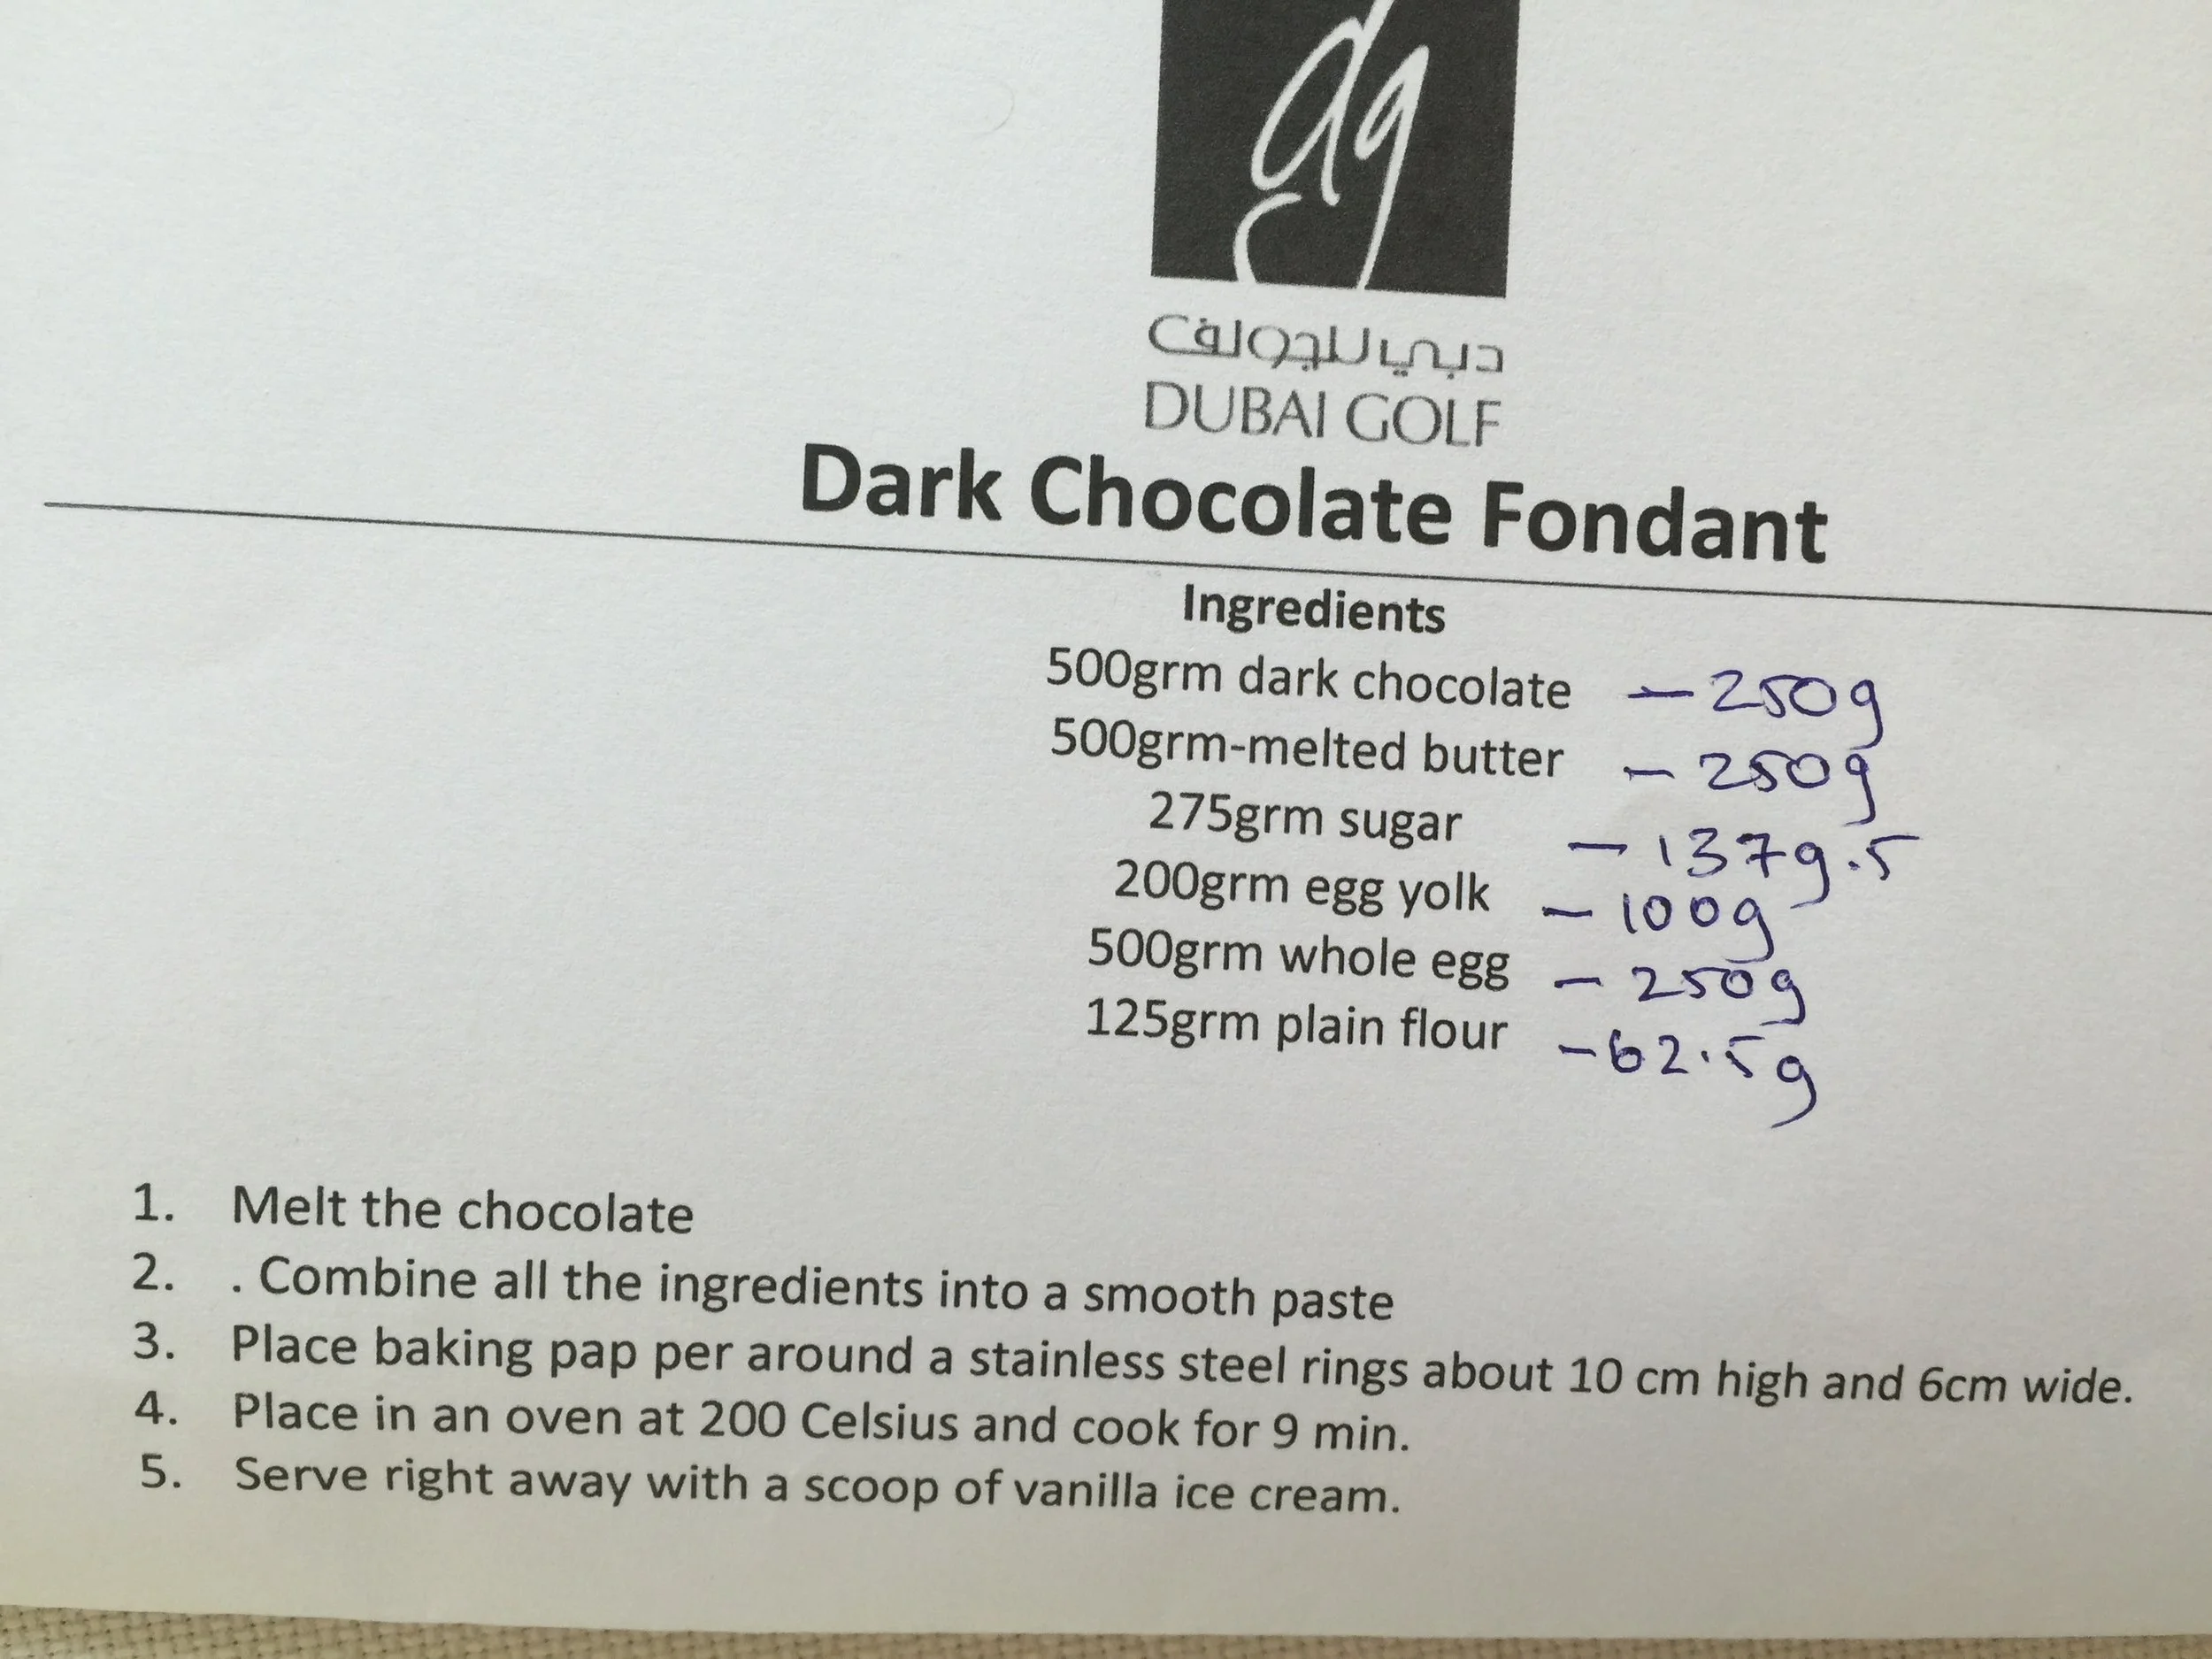 dg
دبي للجولف
DUBAI GOLF
Dark Chocolate Fondant
Ingredients
500grm dark chocolate – 250g
500grm-melted butter – 250g
275grm sugar – 137g.5
200grm egg yolk – 100g
500grm whole egg – 250g
125grm plain flour – 62.5g
1. Melt the chocolate
2. . Combine all the ingredients into a smooth paste
3. Place baking pap per around a stainless steel rings about 10 cm high and 6cm wide.
4. Place in an oven at 200 Celsius and cook for 9 min.
5. Serve right away with a scoop of vanilla ice cream.